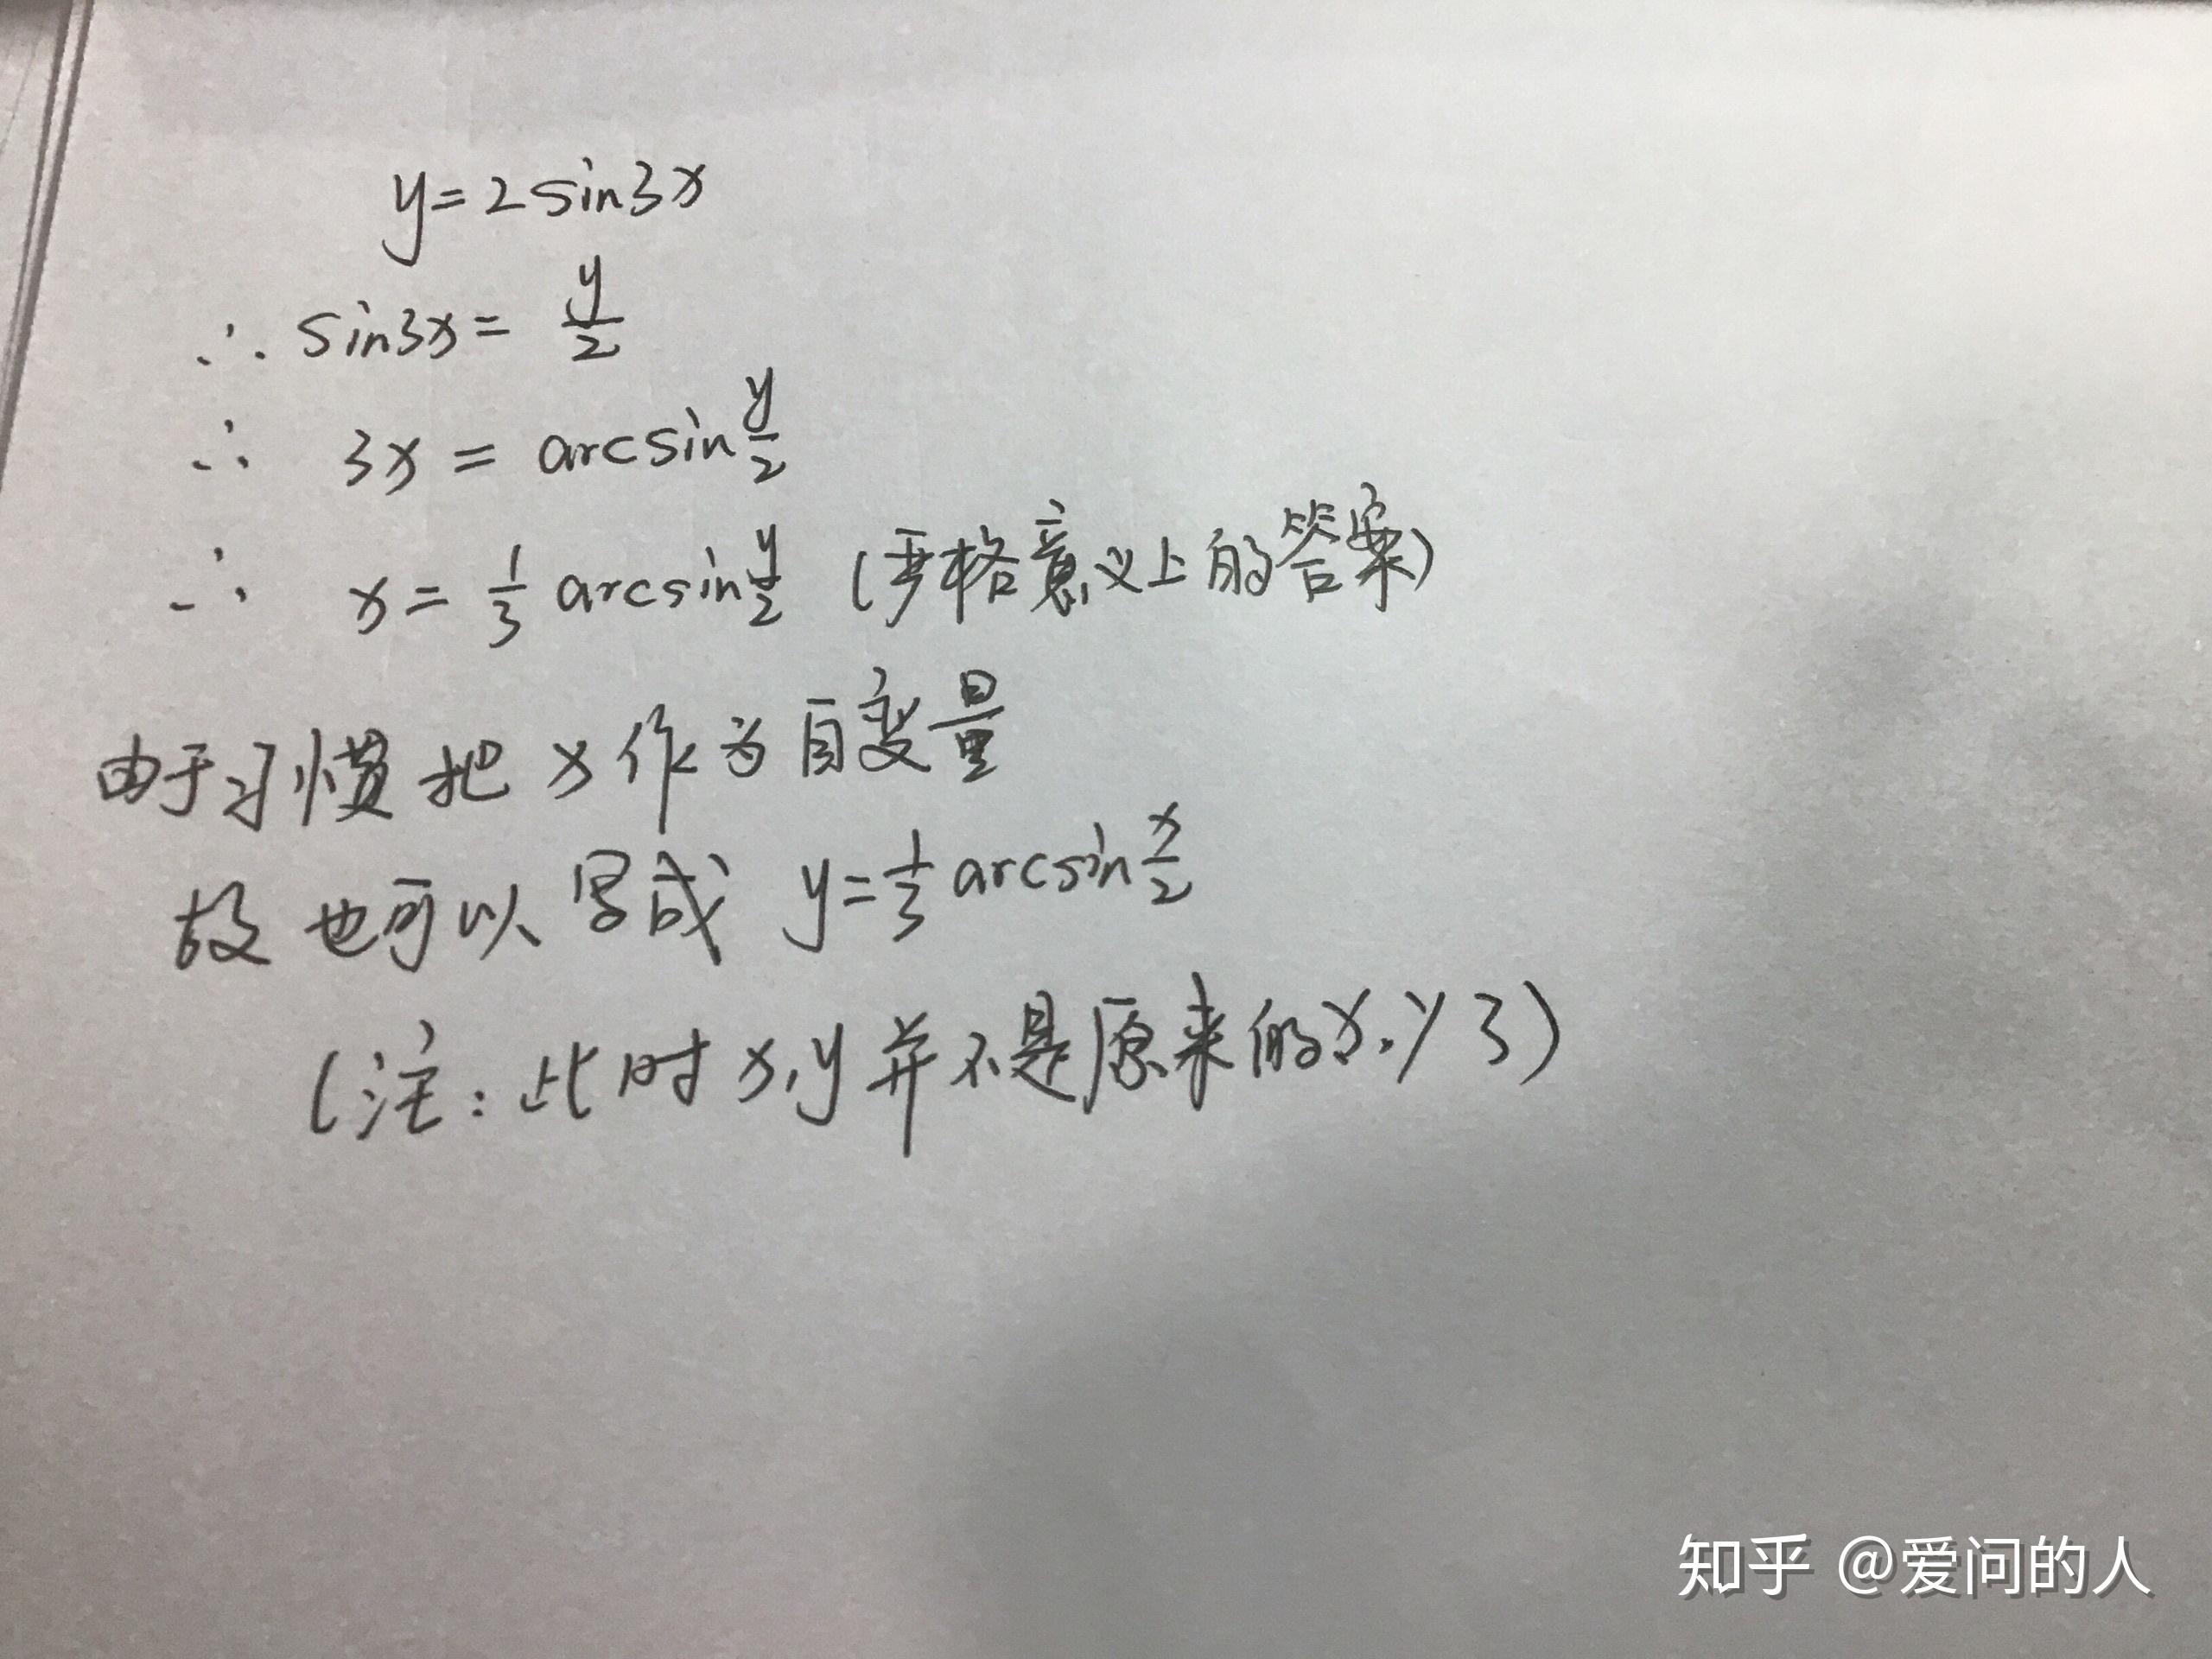 y=2sin3x
∴ sin3x= y/2
∴ 3x = arcsin y/2
∴ x= 1/3 arcsin y/2 (严格意义上的答案)
由于习惯把x作为自变量
故也可以写成 y=1/3 arcsin x/2
(注:此时x,y并不是原来的x,y了)
知乎 @爱问的人